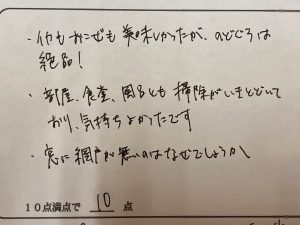 ・イカもおこぜも美味しかったが、のどぐろは
絶品！
・部屋、食堂、風呂とも掃除がいきとどいて
おり、気持ちよかったです
・窓に網戸が無いのはなぜでしょうか
10点満点で 10 点